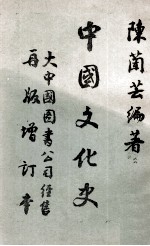 陳蘭荪編著
中國文化史
大中國圖書公司經售
再版增訂本